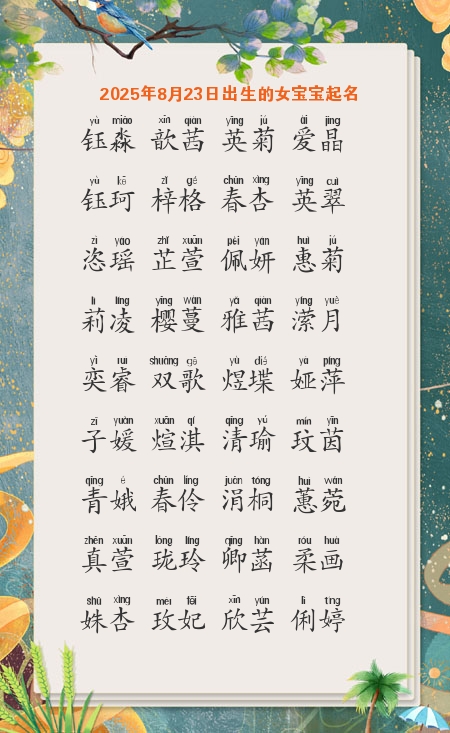 2025年8月23日出生的女宝宝起名
yù miǎo xīn qiàn yīng jú ài jīng
钰淼 歆茜 英菊 爱晶
yù kē zǐ gé chūn xìng yīng cuì
钰珂 梓格 春杏 英翠
zī yáo zhǐ xuān pèi yán huì jú
恣瑶 芷萱 佩妍 惠菊
lì líng yīng wàn yǎ qiàn yíng yuè
莉凌 樱蔓 雅茜 潆月
yì ruì shuāng gē yù dié yà píng
奕睿 双歌 煜堞 娅萍
zǐ yuàn xuān qí qīng yú mín yīn
子媛 煊淇 清瑜 玟茵
qīng é chūn líng juān tóng huì wǎn
青娥 春伶 涓桐 蕙菀
zhēn xuān lóng líng qīng hàn róu huà
真萱 珑玲 卿菡 柔画
shū xìng méi fēi xīn yún lì tíng
姝杏 玫妃 欣芸 俐婷